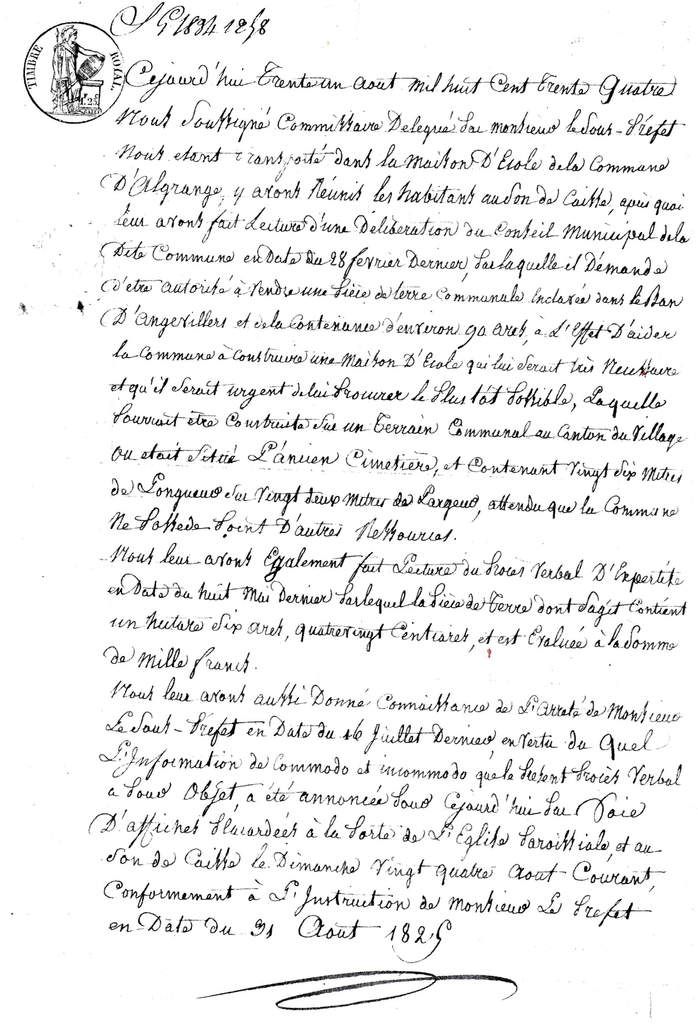 1834 1258
TIMBRE ROYAL
Cejourd'hui trente un aout mil huit Cent trente Quatre
Nous Soussigné Commissaire Delegué par monsieur le Sous-Préfet
Nous etant transporté dans la Maison D'Ecole de la Commune
D'Algrange, y avons Réunis les habitants au Son de Caisse, après quoi
leur avons fait Lecture d'une Déliberation du Conseil Municipal de la
Dite Commune en Date du 28 fevrier Dernier, par laquelle il Démande
d'etre autorisé à Vendre une Pièce de terre Communale Enclavée dans le Ban
D'Angevillers et de la Contenance d'environ 90 ares, à L'Effet D'aider
la Commune à Construire une Maison D'Ecole qui lui serait très Necessaire
et qu'il serait urgent de lui Procurer le Plus tôt Possible, Laquelle
Pourrait etre Construite sur un Terrain Communal au Canton du Village
ou etait situé L'ancien Cimetière, et Contenant Vingt Six Metres
de Longueur sur Vingt deux Metres de Largeur, attendu que la Commune
Ne Possede Point D'autres Ressources.
Nous leur avons Egalement fait Lecture du Procès Verbal D'Expertise
en Date du huit Mai Dernier par lequel la Pièce de Terre dont s'agit Contient
un hectare Six ares, quatrevingt Centiares, et est Evaluée à la Somme
de Mille francs.
Nous leur avons aussi Donné Connaissance de L'Arreté de Monsieur
Le Sous-Prefet en Date du 16 Juillet Dernier en vertu du Quel
L'Information de Commodo et incommodo que le Présent Procès Verbal
a pour Objet, a été annoncée pour Cejourd'hui par Voie
D'affiches Placardées à la Porte de L'Eglise Paroissiale, et au
Son de Caisse le Dimanche Vingt quatre Aout Courant,
Conformement à L'Instruction de Monsieur Le Prefet
en Date du 31 Aout 1825